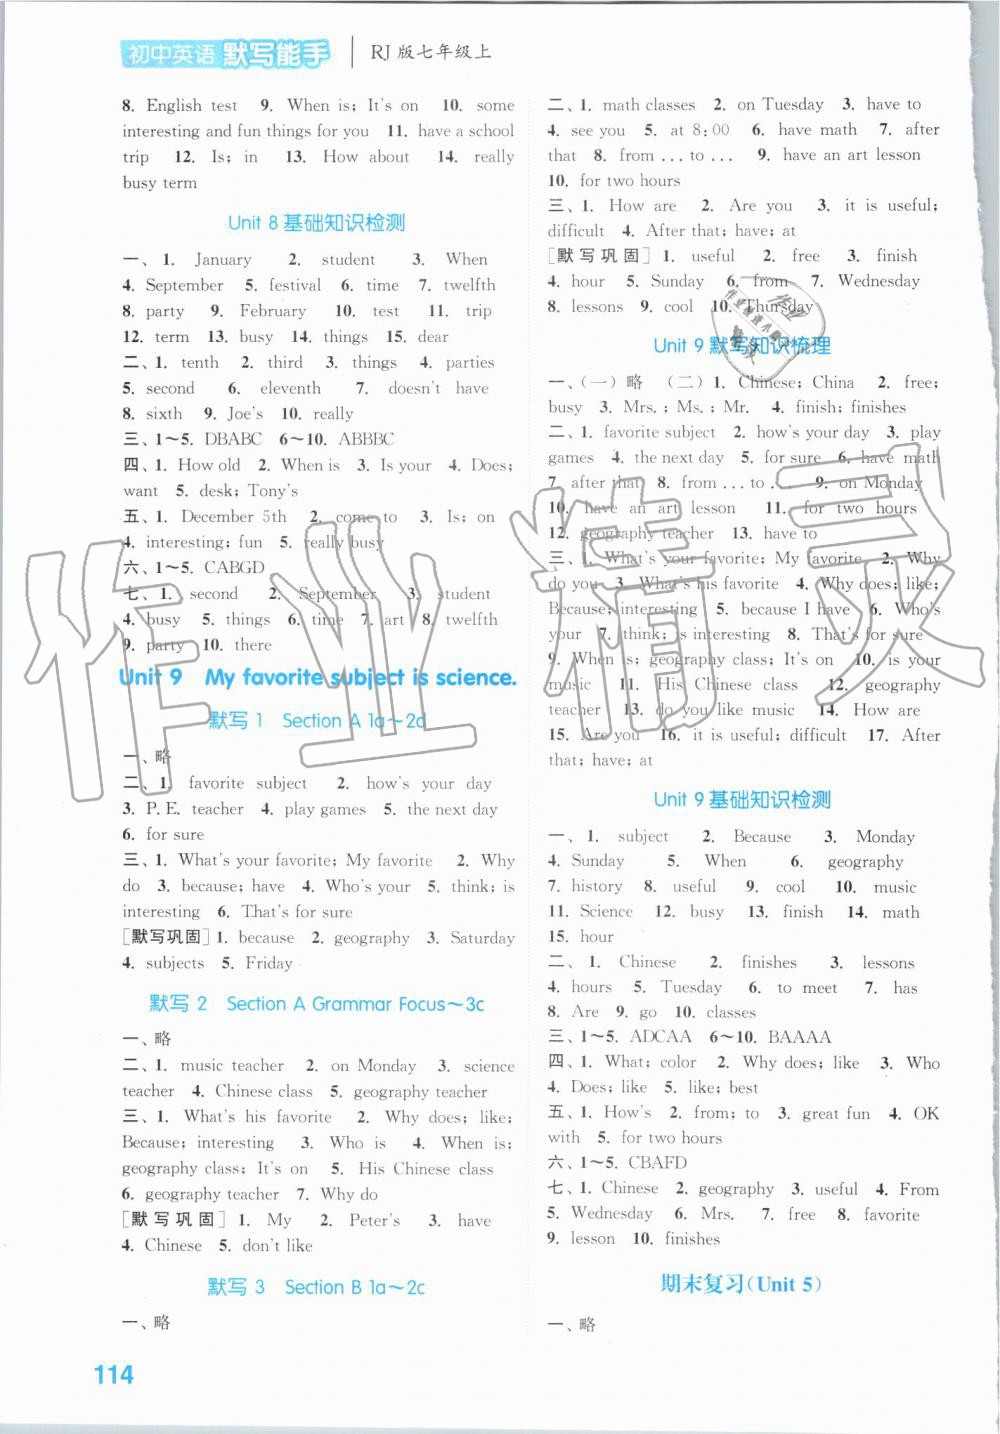 初中英语 默写能手 RJ版七年级上
8. English test 9. When is; It's on 10. some
interesting and fun things for you 11. have a school
trip 12. Is; in 13. How about 14. really
busy term
Unit 8基础知识检测
一、1. January 2. student 3. When
4. September 5. festival 6. time 7. twelfth
8. party 9. February 10. test 11. trip
12. term 13. busy 14. things 15. dear
二、1. tenth 2. third 3. things 4. parties
5. second 6. eleventh 7. doesn't have
8. sixth 9. Joe's 10. really
三、1～5. DBABC 6～10. ABBBC
四、1. How old 2. When is 3. Is your 4. Does;
want 5. desk; Tony's
五、1. December 5th 2. come to 3. Is; on
4. interesting; fun 5. really busy
六、1～5. CABGD
七、1. second 2. September 3. student
4. busy 5. things 6. time 7. art 8. twelfth
9. party 10. there
Unit 9 My favorite subject is science.
默写 1 Section A 1a～2d
一、略
二、1. favorite subject 2. how's your day
3. P. E. teacher 4. play games 5. the next day
6. for sure
三、1. What's your favorite; My favorite 2. Why
do 3. because; have 4. Who's your 5. think; is
interesting 6. That's for sure
[默写巩固] 1. because 2. geography 3. Saturday
4. subjects 5. Friday
默写 2 Section A Grammar Focus～3c
一、略
二、1. music teacher 2. on Monday 3. science
teacher 4. Chinese class 5. geography teacher
三、1. What's his favorite 2. Why does; like;
Because; interesting 3. Who is 4. When is;
geography class; It's on 5. His Chinese class
6. geography teacher 7. Why do
[默写巩固] 1. My 2. Peter's 3. have
4. Chinese 5. don't like
默写 3 Section B 1a～2c
一、略
114
二、1. math classes 2. on Tuesday 3. have to
4. see you 5. at 8:00 6. have math 7. after
that 8. from ... to ... 9. have an art lesson
10. for two hours
三、1. How are 2. Are you 3. it is useful;
difficult 4. After that; have; at
[默写巩固] 1. useful 2. free 3. finish
4. hour 5. Sunday 6. from 7. Wednesday
8. lessons 9. cool 10. Thursday
Unit 9默写知识梳理
一、(一)略 (二)1. Chinese; China 2. free;
busy 3. Mrs. ; Ms. ; Mr. 4. finish; finishes
二、1. favorite subject 2. how's your day 3. play
games 4. the next day 5. for sure 6. have math
7. after that 8. from ... to ... 9. on Monday
10. have an art lesson 11. for two hours
12. geography teacher 13. have to
三、1. What's your favorite; My favorite 2. Why
do you 3. What's his favorite 4. Why does; like;
Because; interesting 5. because I have 6. Who's
your 7. think; is interesting 8. That's for sure
9. When is; geography class; It's on 10. is your
music 11. His Chinese class 12. geography
teacher 13. do you like music 14. How are
15. Are you 16. it is useful; difficult 17. After
that; have; at
Unit 9基础知识检测
一、1. subject 2. Because 3. Monday
4. Sunday 5. When 6. geography
7. history 8. useful 9. cool 10. music
11. Science 12. busy 13. finish 14. math
15. hour
二、1. Chinese 2. finishes 3. lessons
4. hours 5. Tuesday 6. to meet 7. has
8. Are 9. go 10. classes
三、1～5. ADCAA 6～10. BAAAA
四、1. What; color 2. Why does; like 3. Who
4. Does; like 5. like; best
五、1. How's 2. from; to 3. great fun 4. OK
with 5. for two hours
六、1～5. CBAFD
七、1. Chinese 2. geography 3. useful 4. From
5. Wednesday 6. Mrs. 7. free 8. favorite
9. lesson 10. finishes
期末复习(Unit 5)
一、略
作业精灵